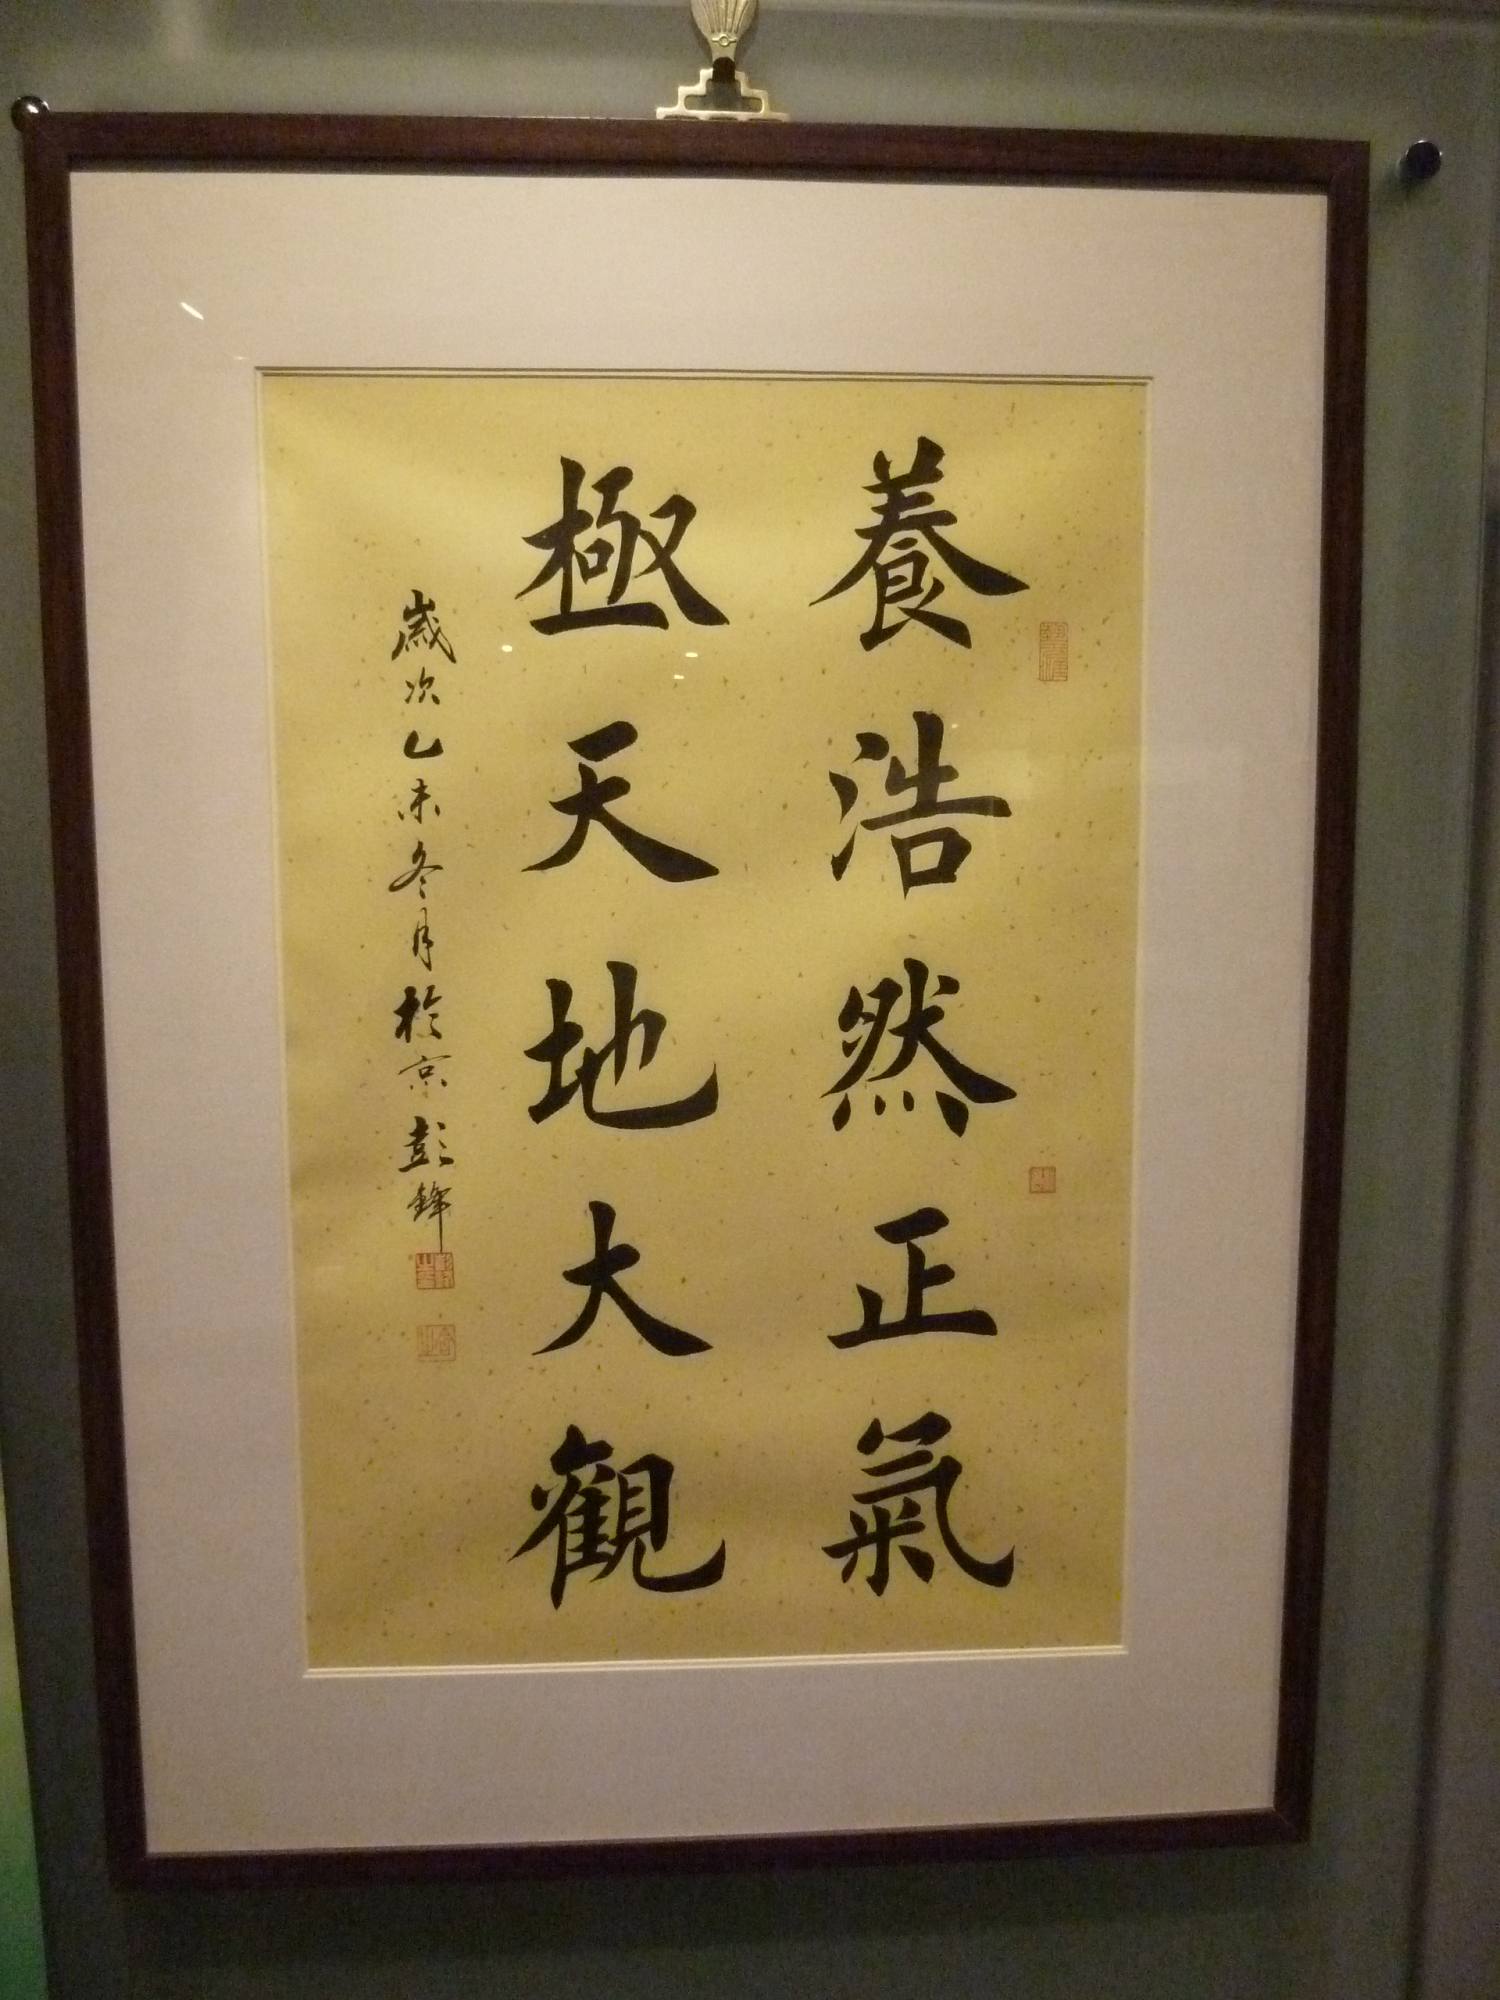 養浩然正氣
極天地大觀
歲次乙未冬月於京彭鋒